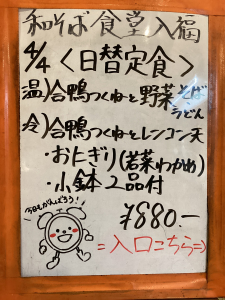 和そば食堂入福
4/4 <日替定食>
温)合鴨つくねと野菜そばうどん
冷)合鴨つくねとレンコン天
・おにぎり(若菜わかめ)
・小鉢2品付
今日もがんばろう!
¥880.-
=入口こちら⇒